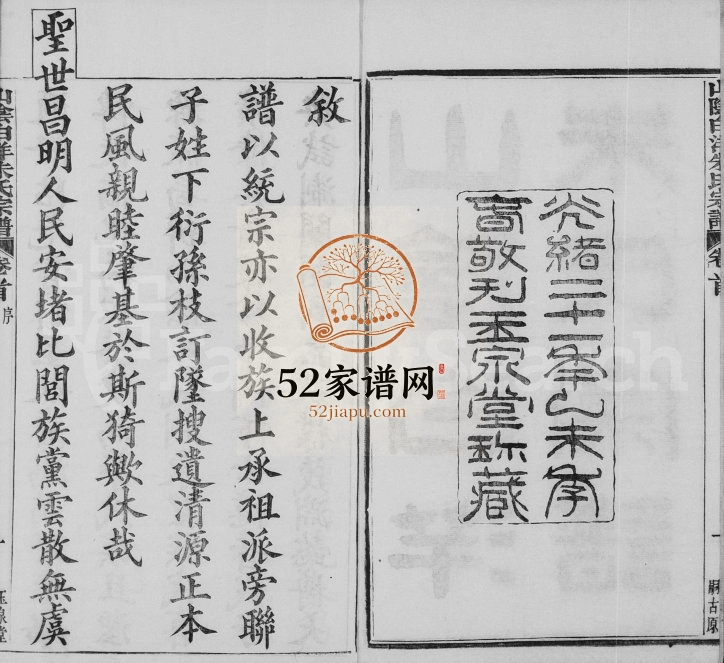 山陰白洋朱氏宗譜
卷首
一
光緒二十一年乙未季
春敬刊玉泉堂珍藏
敘
譜以統宗亦以收族上承祖派旁聯
子姓下衍孫枝訂墜搜遺清源正本
民風親睦肇基於斯猗歟休哉
聖世昌明人民安堵比閭族黨雲散無虞
山陰白洋朱氏宗譜
卷首
序
一
玉泉堂
52家谱网
52jiapu.com